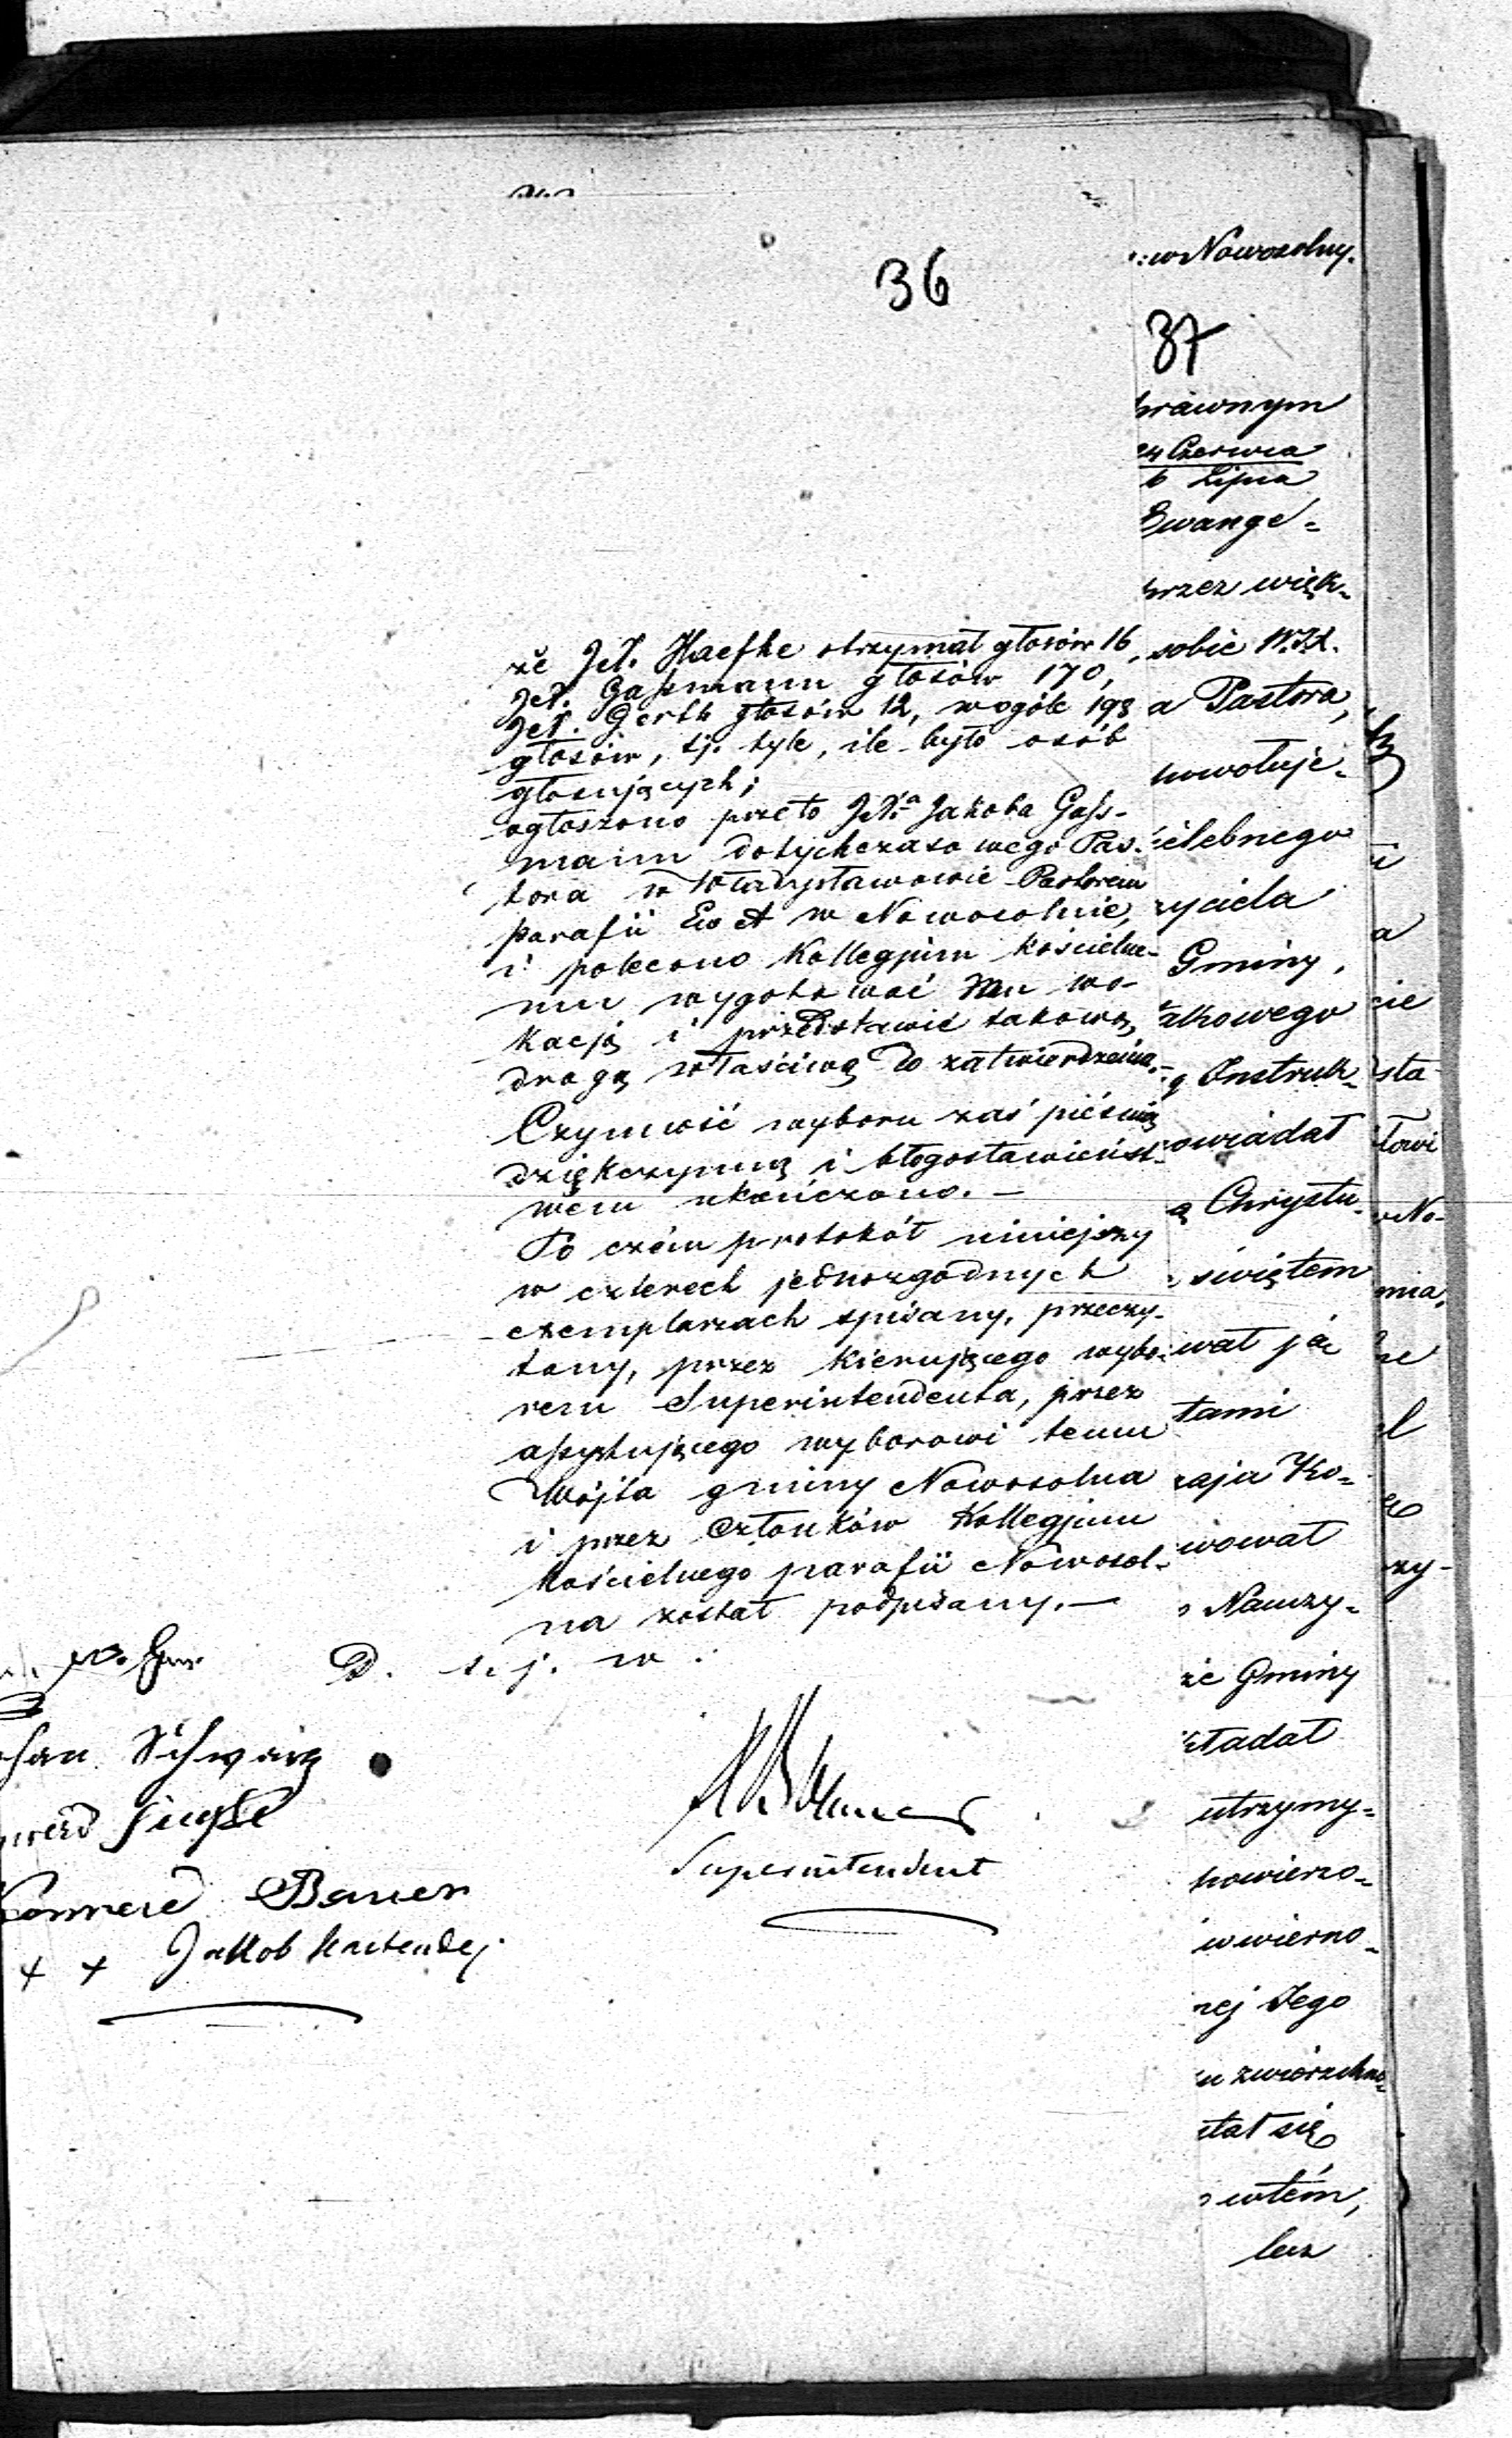 36
że JX. Haefke otrzymał głosów 16,
JX. Gaßmann głosów 170,
JX. Gerth głosów 12, wogóle 198
głosów, tj. tyle, ile było osób
głosujących;
ogłoszono przeto JXa Jakoba Gaß-
mann dotychczasowego Pas-
tora w Władysławowie Pastorem
parafii Ew A w Nowosolnie,
i polecono Kollegjum kościelne-
mu wygotować Mu wo-
kacją i przedstawić takową
drogą właściwą do zatwierdzenia.-
Czynność wyboru zaś pieśnią
dziękczynną i błogosławieńst-
wem ukończono. -
Po czém protokół niniejszy
w czterech jednozgodnych
exemplarzach spisany, przeczy-
tany, przez kierującego wybo-
rem Superintendenta, przez
assystującego wyborowi temu
Wójta gminy Nowosolna
i przez Członków Kollegjum
kościelnego parafii Nowosol-
na został podpisany. -
D. t. j. w.
Superintendent
Schwarz
Bauer
+ + Jakob
w Nowosolny.
37
prawnym
24 Czerwca
6 Lipca
Ewange-
przez więk-
sobie W.JX.
a Pastora,
powołuje-
ielebnego
zyciela
Gminy,
ątkowego
ą Instruk-
owiadał
ą Chrystu-
świętem
wał ja
tami
zaja Ko-
wował
Nauczy-
że Gminy
kładał
utrzymy-
powierzo-
w wierno-
nej Jego
u zwierzchno-
stał się
w tém,
lecz
a
cie
sta
łowi
w No-
mia.
ze
l
zy-